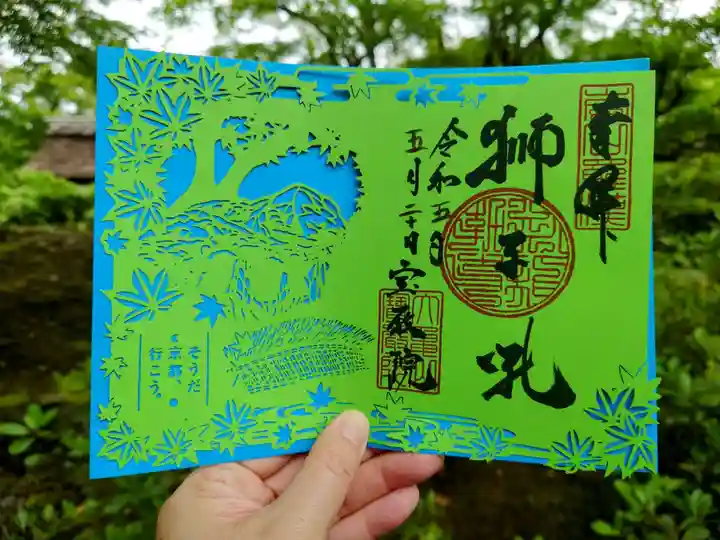 奉拝
獅子吼
令和五年
五月二十日
宝厳院
そうだ
京都、
行こう。